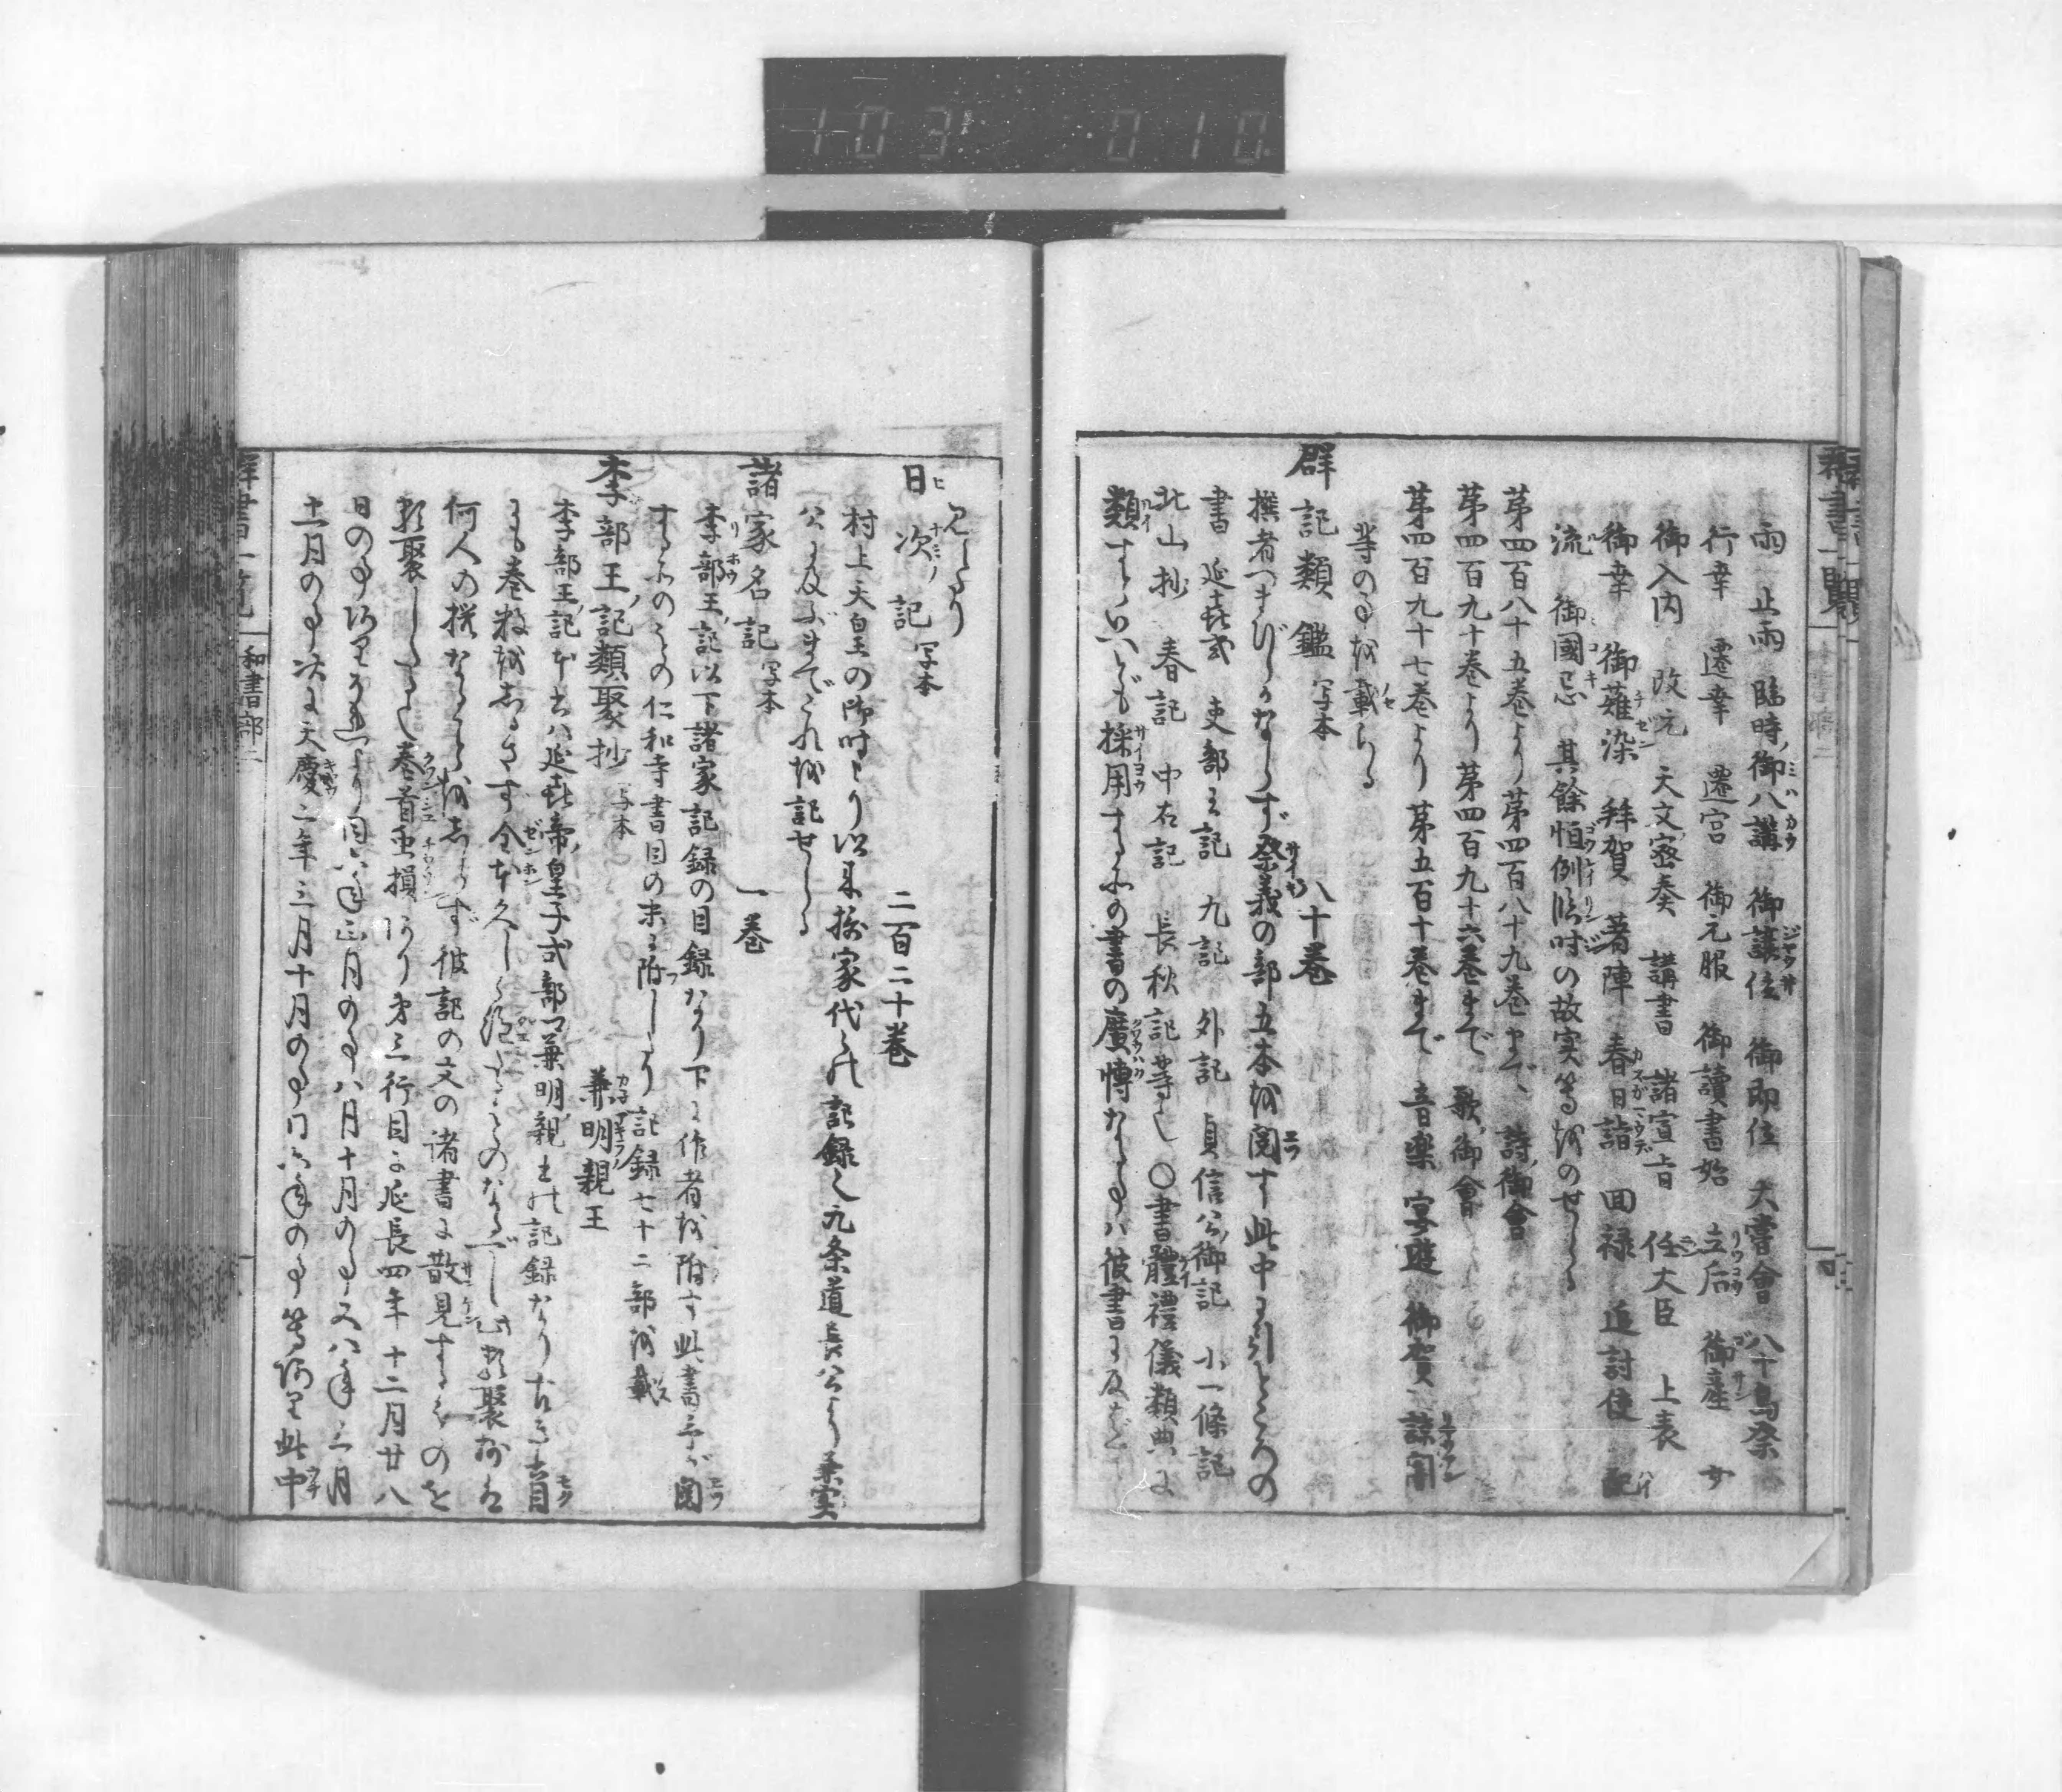 103 010
雨 止雨 臨時御八講 御譲位 御即位 大嘗會 八十島祭
行幸 遷幸 遷宮 御元服 御讀書始 立后 御産 女
御入内 改元 天文密奏 講書 諸宣旨 任大臣 上表
御幸 御薙染 拜賀 著陣 春日詣 回禄 追討使 配
流 御國忌 其餘恒例臨時の故実等をのせたる
苐四百八十五巻より苐四百八十九巻まで、詩御會
苐四百九十巻より苐四百九十六巻まで 歌御會
苐四百九十七巻より苐五百十巻まで 音楽 宴遊 御賀 諒闇
等の事を載たる
群記類鑑 写本 八十巻
撰者つまびらかならず祭義の部五本を閲す此中に引ところの
書 延㐂式 吏部王記 九記 外記 貞信公御記 小一條記
北山抄 春記 中右記 長秋記等也 〇書體禮儀類典に
類すといへども採用するところの書の廣愽なる事ハ彼書に及ばず
見へたり
日次記 写本 二百二十巻
村上天皇の御時より以来摂家代々の記録也九条道長公より兼実
公に及ぶまでこれを記せる
諸家名記 写本 一巻
李部王記以下諸家記録の目録なり下に作者を附す此書予が閲
するところのもの仁和寺書目の末に附したり記録七十二部を載
李部王記類聚抄 写本 兼明親王
李部王記本書ハ延㐂帝皇子式部卿兼明親王の記録なり古き書目
にも巻数をしるさず全本久しく絶たるものなるべし此類聚抄は
何人の撰なることをしらず彼記の文の诸書に散見するものを
類聚したるて巻首虫損あり第三行目に延長四年十二月廿八
日の事ありそれより同六年正月の事八月十月の事又八年三月
十一月の事次に天慶二年三月十月の事同六年の事等あり此中
群書一覧 和書部二